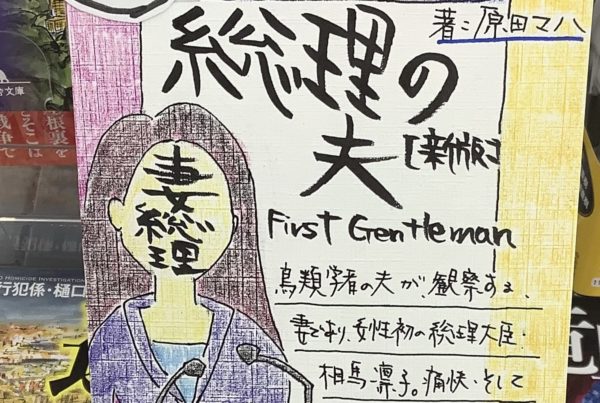 著:原田マハ
総理の
夫
[新版]
First Gentleman
妻
総
理
鳥類学者の夫が、観察する、
妻であり、女性初の総理大臣・
相馬凛子。痛快・そして
文庫
根裏を
そこは
HOMICIDE INVESTIGATION
行犯係・樋口